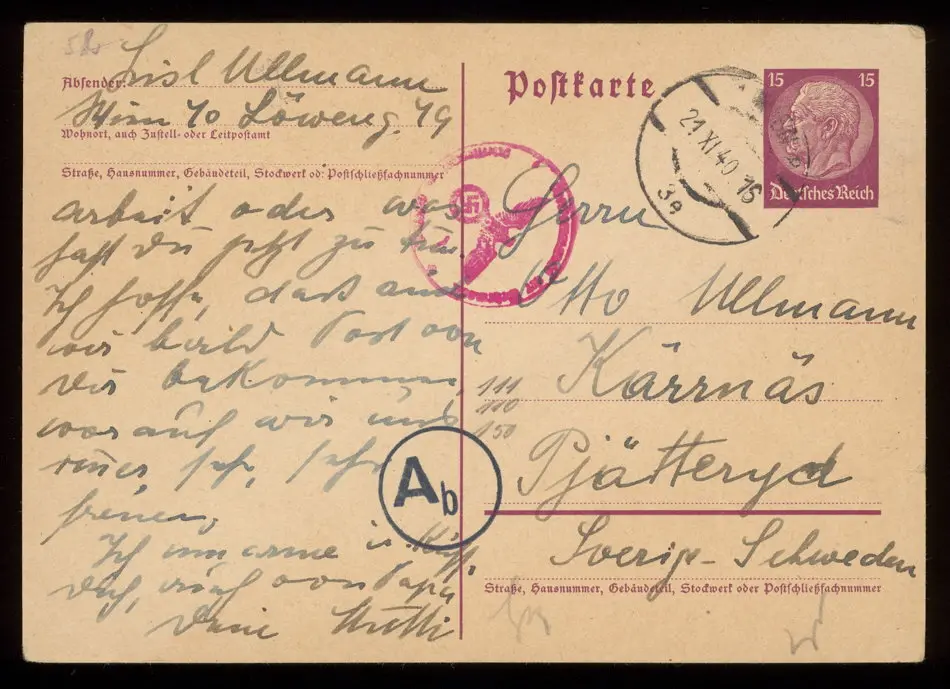 Lisl Ullmann
Absender:
Wien 70 Löweng. 49
Wohnort, auch Zustell- oder Leitpostamt
Straße, Hausnummer, Gebäudeteil, Stockwerk od. Postschließfachnummer
arbeit oder was
hast Du jetzt zu tun.
Ich hoffe, daß auch
wir bald Post von
Dir bekommen,
worauf wir uns
immer sehr, sehr
freuen.
Ich umarme u. küsse
Dich, auch von Papa
Deine Mutti
Postkarte
15 15
Deutsches Reich
21.XI.40 16
3e
Herrn
Otto Ullmann
Kärrnäs
111
110
150
Pjätteryd
Sverige-Schweden
Straße, Hausnummer, Gebäudeteil, Stockwerk oder Postschließfachnummer
Ab